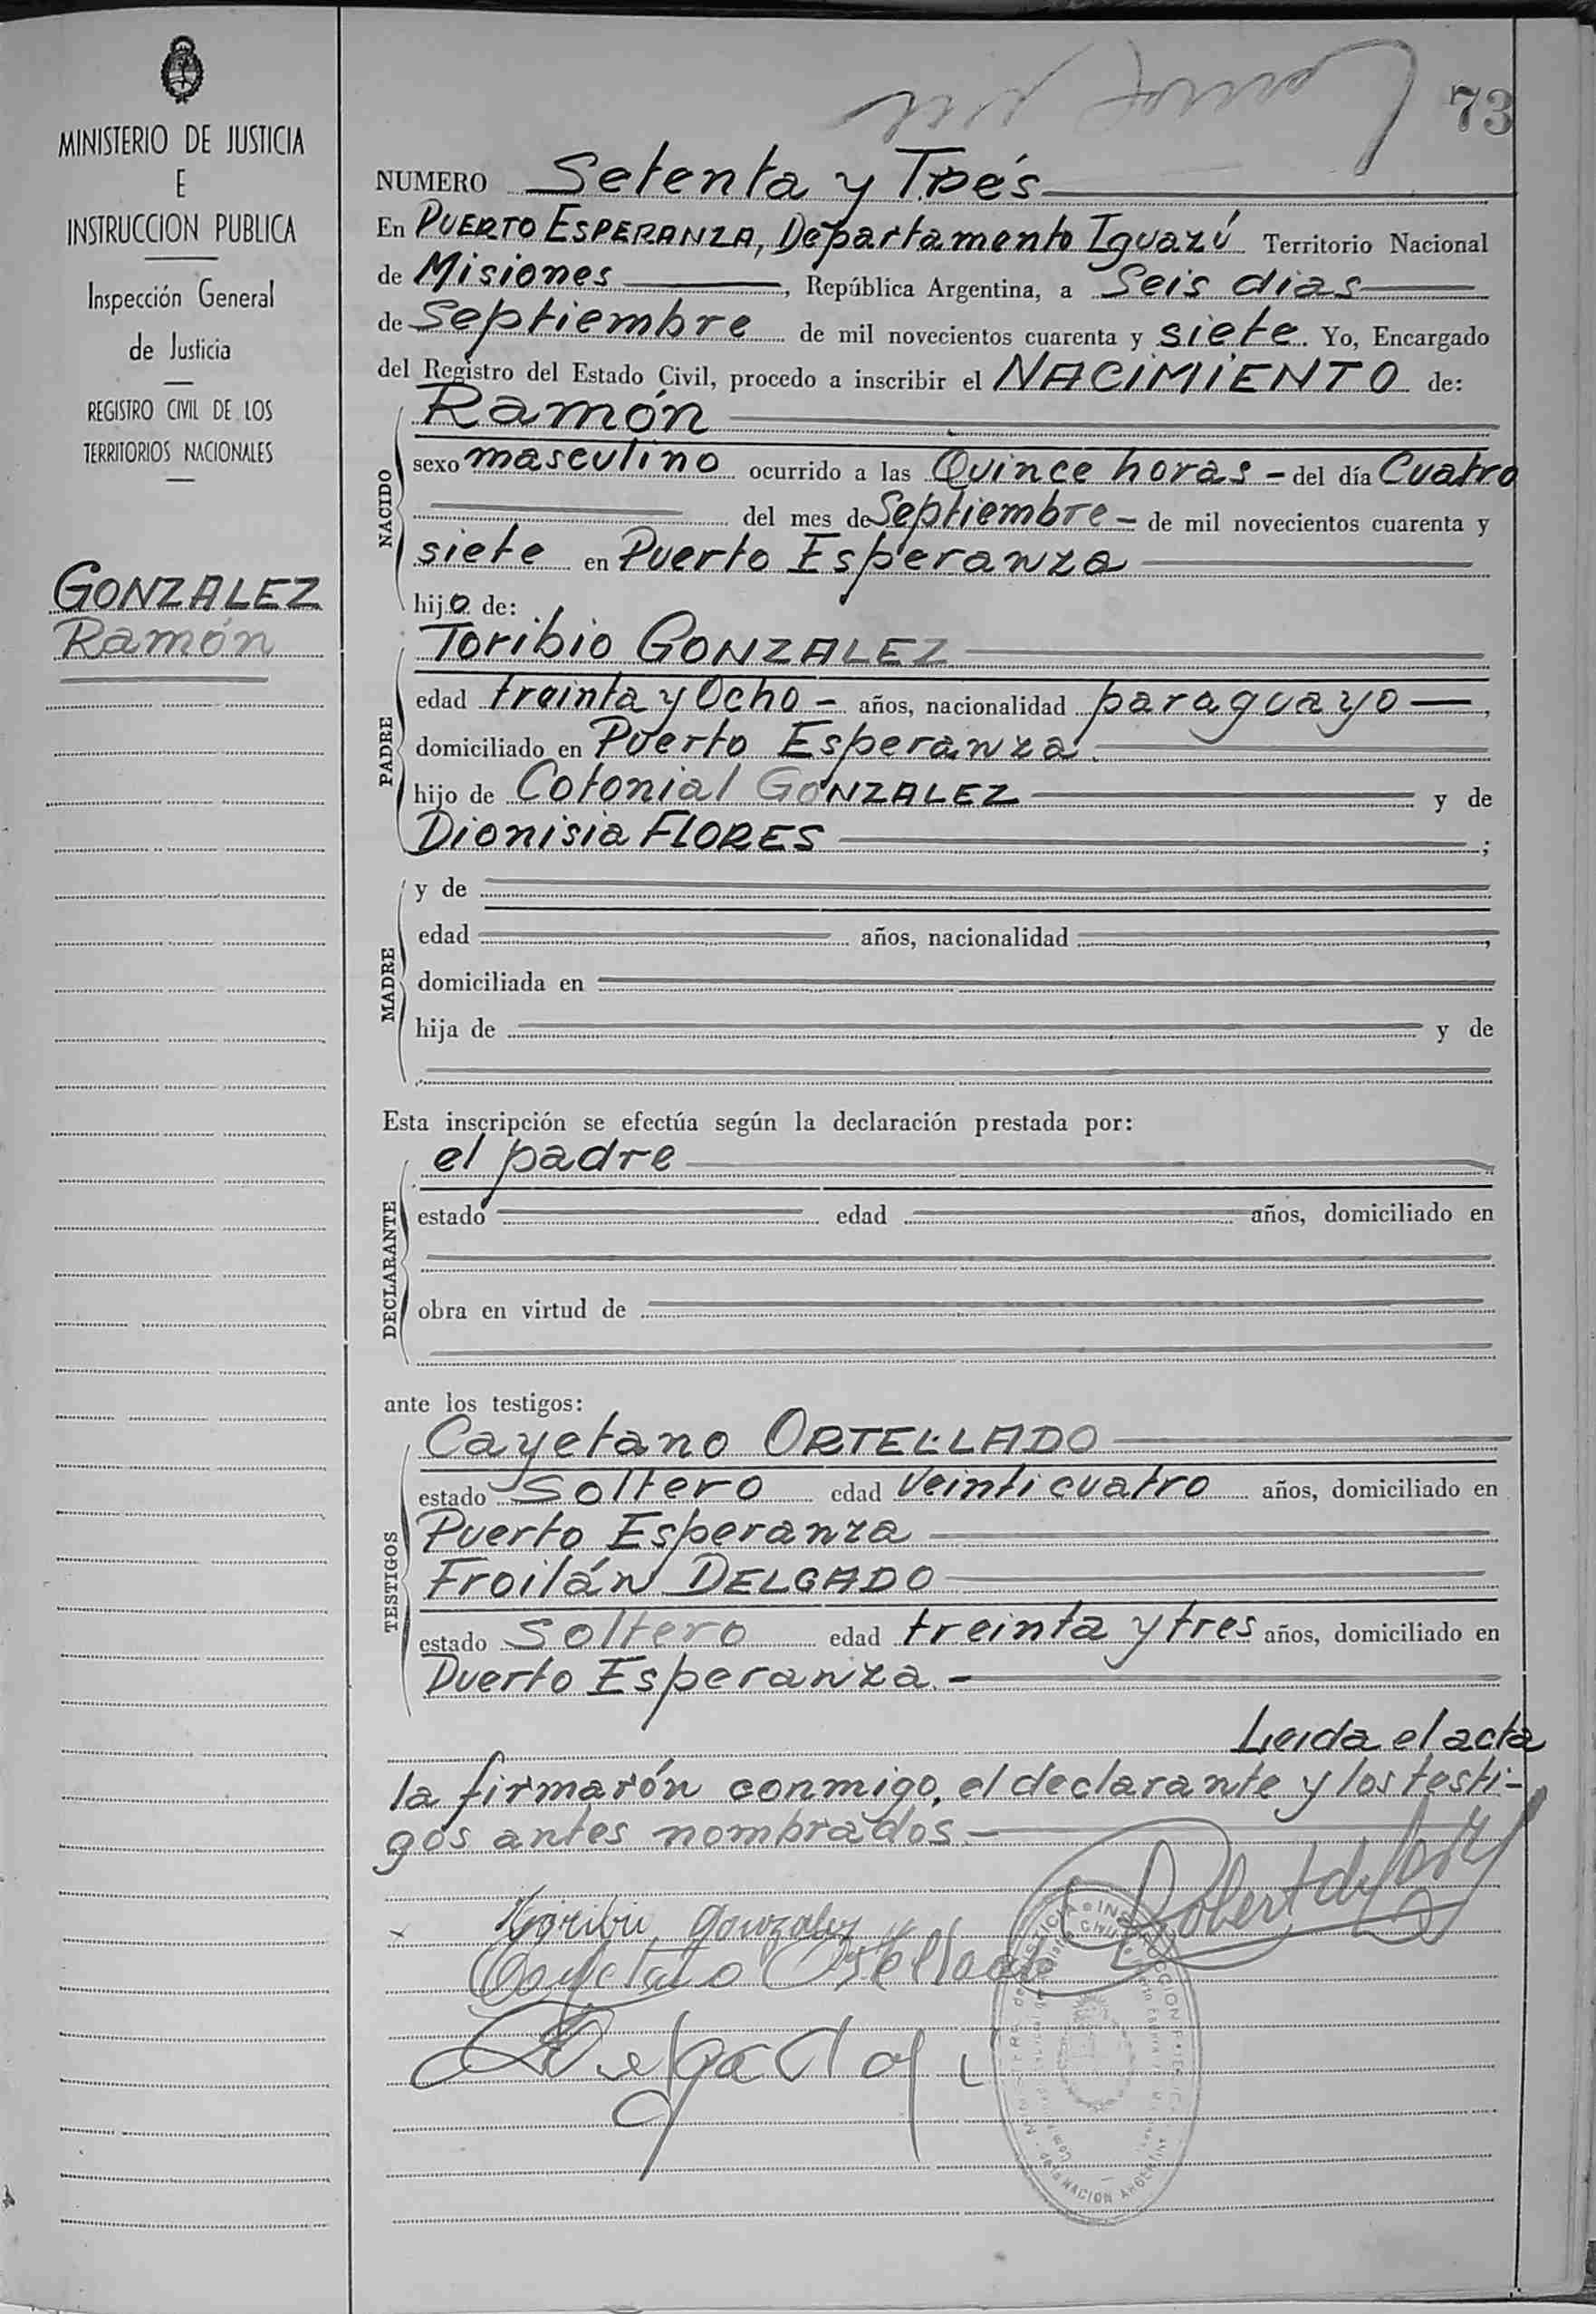 MINISTERIO DE JUSTICIA
E
INSTRUCCION PUBLICA
Inspección General
de Justicia
REGISTRO CIVIL DE LOS
TERRITORIOS NACIONALES
GONZALEZ
Ramón
73
NUMERO Setenta y Trés
En PUERTO ESPERANZA, Departamento Iguazú Territorio Nacional
de Misiones, República Argentina, a Seis dias
de Septiembre de mil novecientos cuarenta y siete. Yo, Encargado
del Registro del Estado Civil, procedo a inscribir el NACIMIENTO de:
NACIDO
Ramón
sexo masculino ocurrido a las Quince horas - del día Cuatro
del mes de Septiembre - de mil novecientos cuarenta y
siete en Puerto Esperanza
hijo de:
PADRE
Toribio GONZALEZ
edad treinta y Ocho - años, nacionalidad paraguayo —,
domiciliado en Puerto Esperanza.
hijo de Cotonial GONZALEZ y de
Dionisia FLORES ;
MADRE
y de
edad años, nacionalidad ,
domiciliada en
hija de y de
Esta inscripción se efectúa según la declaración prestada por:
DECLARANTE
el padre
estado edad años, domiciliado en
obra en virtud de
ante los testigos:
TESTIGOS
Cayetano ORTELLADO
estado Soltero edad Veinticuatro años, domiciliado en
Puerto Esperanza
Froilán DELGADO
estado Soltero edad treinta y tres años, domiciliado en
Puerto Esperanza. -
Leida el acta
la firmarón conmigo, el declarante y los testi-
gos antes nombrados —
Toribio Gonzalez
Cayetano Ortellado
Delgado